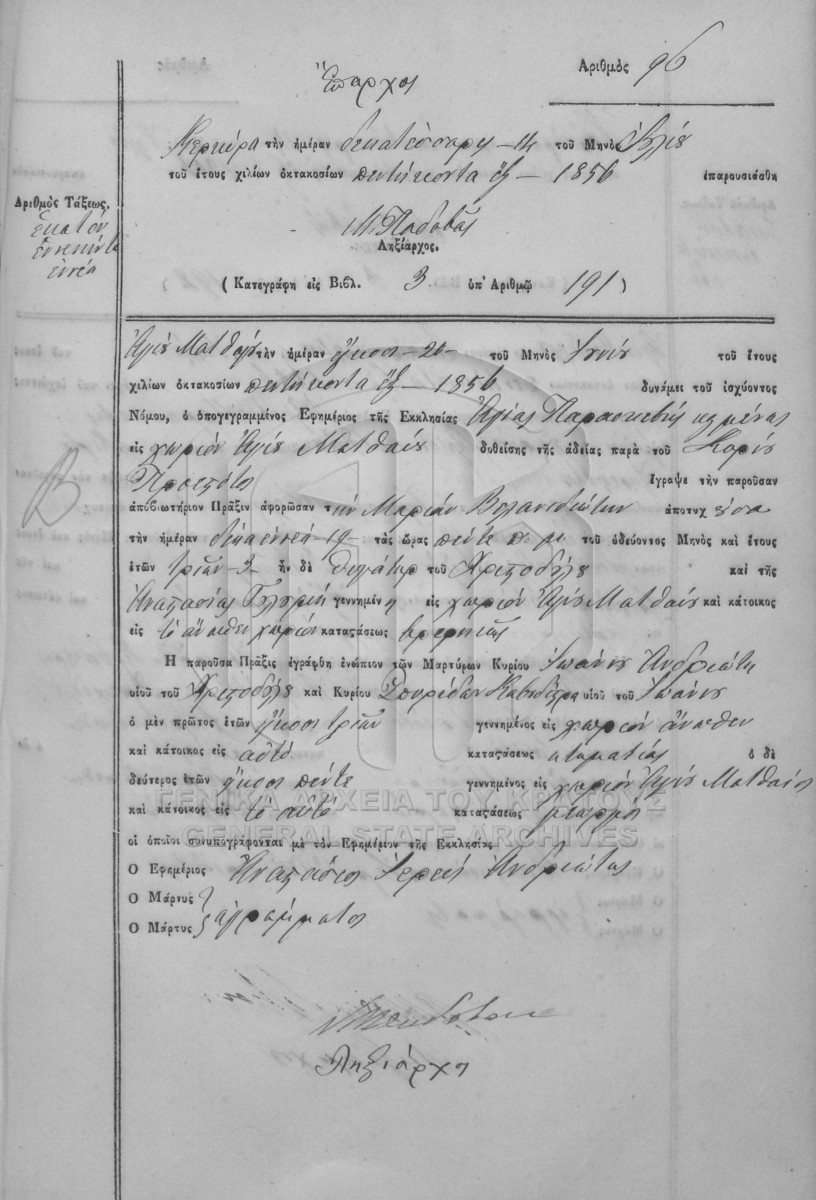 Ἔπαρχος
Ἀριθμὸς 96
Κερκύρα τὴν ἡμέραν δεκατέσσαρες — 14 τοῦ Μηνὸς Ἰουλίου
τοῦ ἔτους χιλίων ὀκτακοσίων πεντήκοντα ἕξ — 1856 ἐπαρουσιάσθη
Ἀριθμὸς Τάξεως.
ἑκατὸν
ἐννενήντα
ἐννέα
Μ. Παδοβᾶς
Ληξίαρχος.
( Κατεγράφη εἰς Βιβλ. 3 ὑπ' Ἀριθμῷ 191 )
Ἁγίου Ματθαίου τὴν ἡμέραν εἴκοσι — 20 — τοῦ Μηνὸς Ἰουνίου τοῦ ἔτους
χιλίων ὀκτακοσίων πεντήκοντα ἕξ — 1856 δυνάμει τοῦ ἰσχύοντος
Νόμου, ὁ ὑπογεγραμμένος Ἐφημέριος τῆς Ἐκκλησίας Ἁγίας Παρασκευῆς κειμένης
εἰς χωρίον Ἁγίου Ματθαίου δοθείσης τῆς ἀδείας παρὰ τοῦ Κυρίου
Προεστῶτος ἔγραψε τὴν παροῦσαν
Β
ἀποβιωτήριον Πρᾶξιν ἀφορῶσαν τὴν Μαρίαν ἀποτυχοῦσα
τὴν ἡμέραν δεκαεννέα — 19 — τὰς ὥρας πέντε π. μ. τοῦ ὁδεύοντος Μηνὸς καὶ ἔτους
ἐτῶν τριῶν — 3 — ἦν δὲ θυγάτηρ τοῦ Χριστοδούλου καὶ τῆς
Ἀναστασίας γεννημένη εἰς χωρίον Ἁγίου Ματθαίου καὶ κάτοικος
εἰς τὸ ἄνωθεν χωρίον καταστάσεως βρεφικῆς
Ἡ παροῦσα Πρᾶξις ἐγράφθη ἐνώπιον τῶν Μαρτύρων Κυρίου Ἰωάννου Ἀνδριώτη
υἱοῦ τοῦ Χριστοδούλου καὶ Κυρίου Σπυρίδων υἱοῦ τοῦ Ἰωάννου
ὁ μὲν πρῶτος ἐτῶν εἴκοσι τριῶν γεννημένος εἰς χωρίον ἄνωθεν
καὶ κάτοικος εἰς αὐτὸ καταστάσεως κτηματίας ὁ δὲ
δεύτερος ἐτῶν εἴκοσι πέντε γεννημένος εἰς χωρίον Ἁγίου Ματθαίου
καὶ κάτοικος εἰς τὸ αὐτὸ καταστάσεως γεωργὸς
ΓΕΝΙΚΑ ΑΡΧΕΙΑ ΤΟΥ ΚΡΑΤΟΥΣ
GENERAL STATE ARCHIVES
οἱ ὁποῖοι συνυπογράφονται μὲ τὸν Ἐφημέριον τῆς Ἐκκλησίας
Ὁ Ἐφημέριος Ἀναστάσιος Ἱερεὺς Ἀνδριώτης
Ὁ Μάρτυς
Ὁ Μάρτυς ἀγράμματοι
Ληξίαρχος